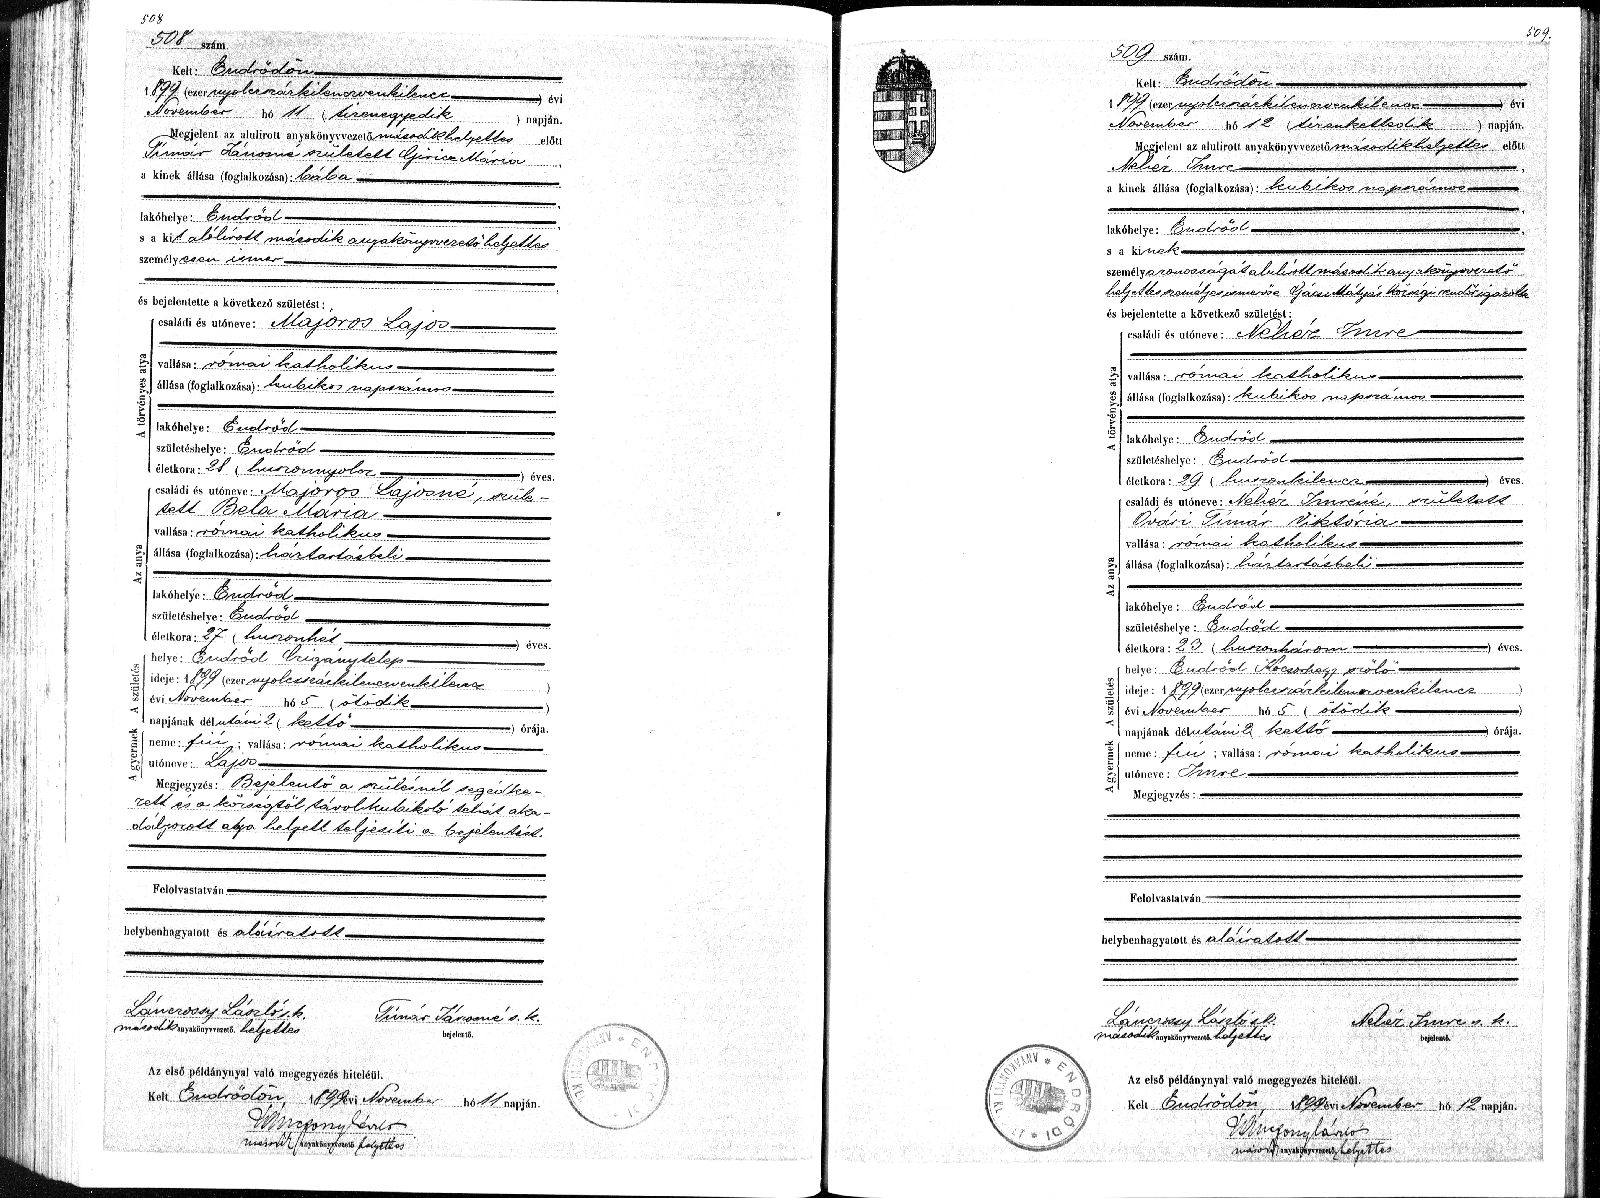 508
508 szám.
Kelt: Endrődön
1899 (ezer nyolczszázkilenczvenkilencz) évi
November hó 11 (tizenegyedik) napján.
Megjelent az alulirott anyakönyvvezető második helyettes előtt
Tímár Jánosné született Giricz Mária,
a kinek állása (foglalkozása): bába
lakóhelye: Endrőd
s a kit alólírott második anyakönyvvezető helyettes
személyesen ismer
és bejelentette a következő születést:
A törvényes atya
családi és utóneve: Majoros Lajos
vallása: római katholikus
állása (foglalkozása): kubikos napszámos
lakóhelye: Endrőd
születéshelye: Endrőd
életkora: 28 (huszonnyolcz) éves.
Az anya
családi és utóneve: Majoros Lajosné, szüle-
tett Bela Mária
vallása: római katholikus
állása (foglalkozása): háztartásbeli
lakóhelye: Endrőd
születéshelye: Endrőd
életkora: 27 (huszonhét) éves.
A születés
helye: Endrőd Czigánytelep
ideje: 1899 (ezer nyolczszázkilenczvenkilencz)
évi November hó 5 (ötödik)
napjának délutáni 2 (kettő) órája.
A gyermek
neme: fiú; vallása: római katholikus
utóneve: Lajos
Megjegyzés: Bejelentő a szülésnél segédke-
zett és a községtől távol kubikoló tehát aka-
dályozott atya helyett teljesíti a bejelentést.
Felolvastatván
helybenhagyatott és aláíratott
Lánczossy László s. k. Tímár Jánosné s. k.
második anyakönyvvezető. helyettes bejelentő.
Az első példánynyal való megegyezés hiteléül.
Kelt Endrődön, 1899 évi November hó 11 napján.
második anyakönyvvezető helyettes
509.
509 szám.
Kelt: Endrődön
1899 (ezer nyolczszázkilenczvenkilencz) évi
November hó 12 (tizenkettedik) napján.
Megjelent az alulirott anyakönyvvezető második helyettes előtt
Nehéz Imre,
a kinek állása (foglalkozása): kubikos napszámos
lakóhelye: Endrőd
s a kinek
személyazonosságát alulírott második anyakönyvvezető
helyettes személyes ismerőse Gácsi Mátyás községi rendőr igazolta
és bejelentette a következő születést:
A törvényes atya
családi és utóneve: Nehéz Imre
vallása: római katholikus
állása (foglalkozása): kubikos napszámos
lakóhelye: Endrőd
születéshelye: Endrőd
életkora: 29 (huszonkilencz) éves.
Az anya
családi és utóneve: Nehéz Imréné, született
Óvári Tímár Viktória
vallása: római katholikus
állása (foglalkozása): háztartásbeli
lakóhelye: Endrőd
születéshelye: Endrőd
életkora: 23 (huszonhárom) éves.
A születés
helye: Endrőd Kocsorhegy szőlő
ideje: 1899 (ezer nyolczszázkilenczvenkilencz)
évi November hó 5 (ötödik)
napjának délutáni 2 kettő órája.
A gyermek
neme: fiú; vallása: római katholikus
utóneve: Imre
Megjegyzés:
Felolvastatván
helybenhagyatott és aláíratott
Lánczossy László s. k. Nehéz Imre s. k.
második anyakönyvvezető. helyettes bejelentő.
Az első példánynyal való megegyezés hiteléül.
Kelt Endrődön, 1899 évi November hó 12 napján.
második anyakönyvvezető helyettes